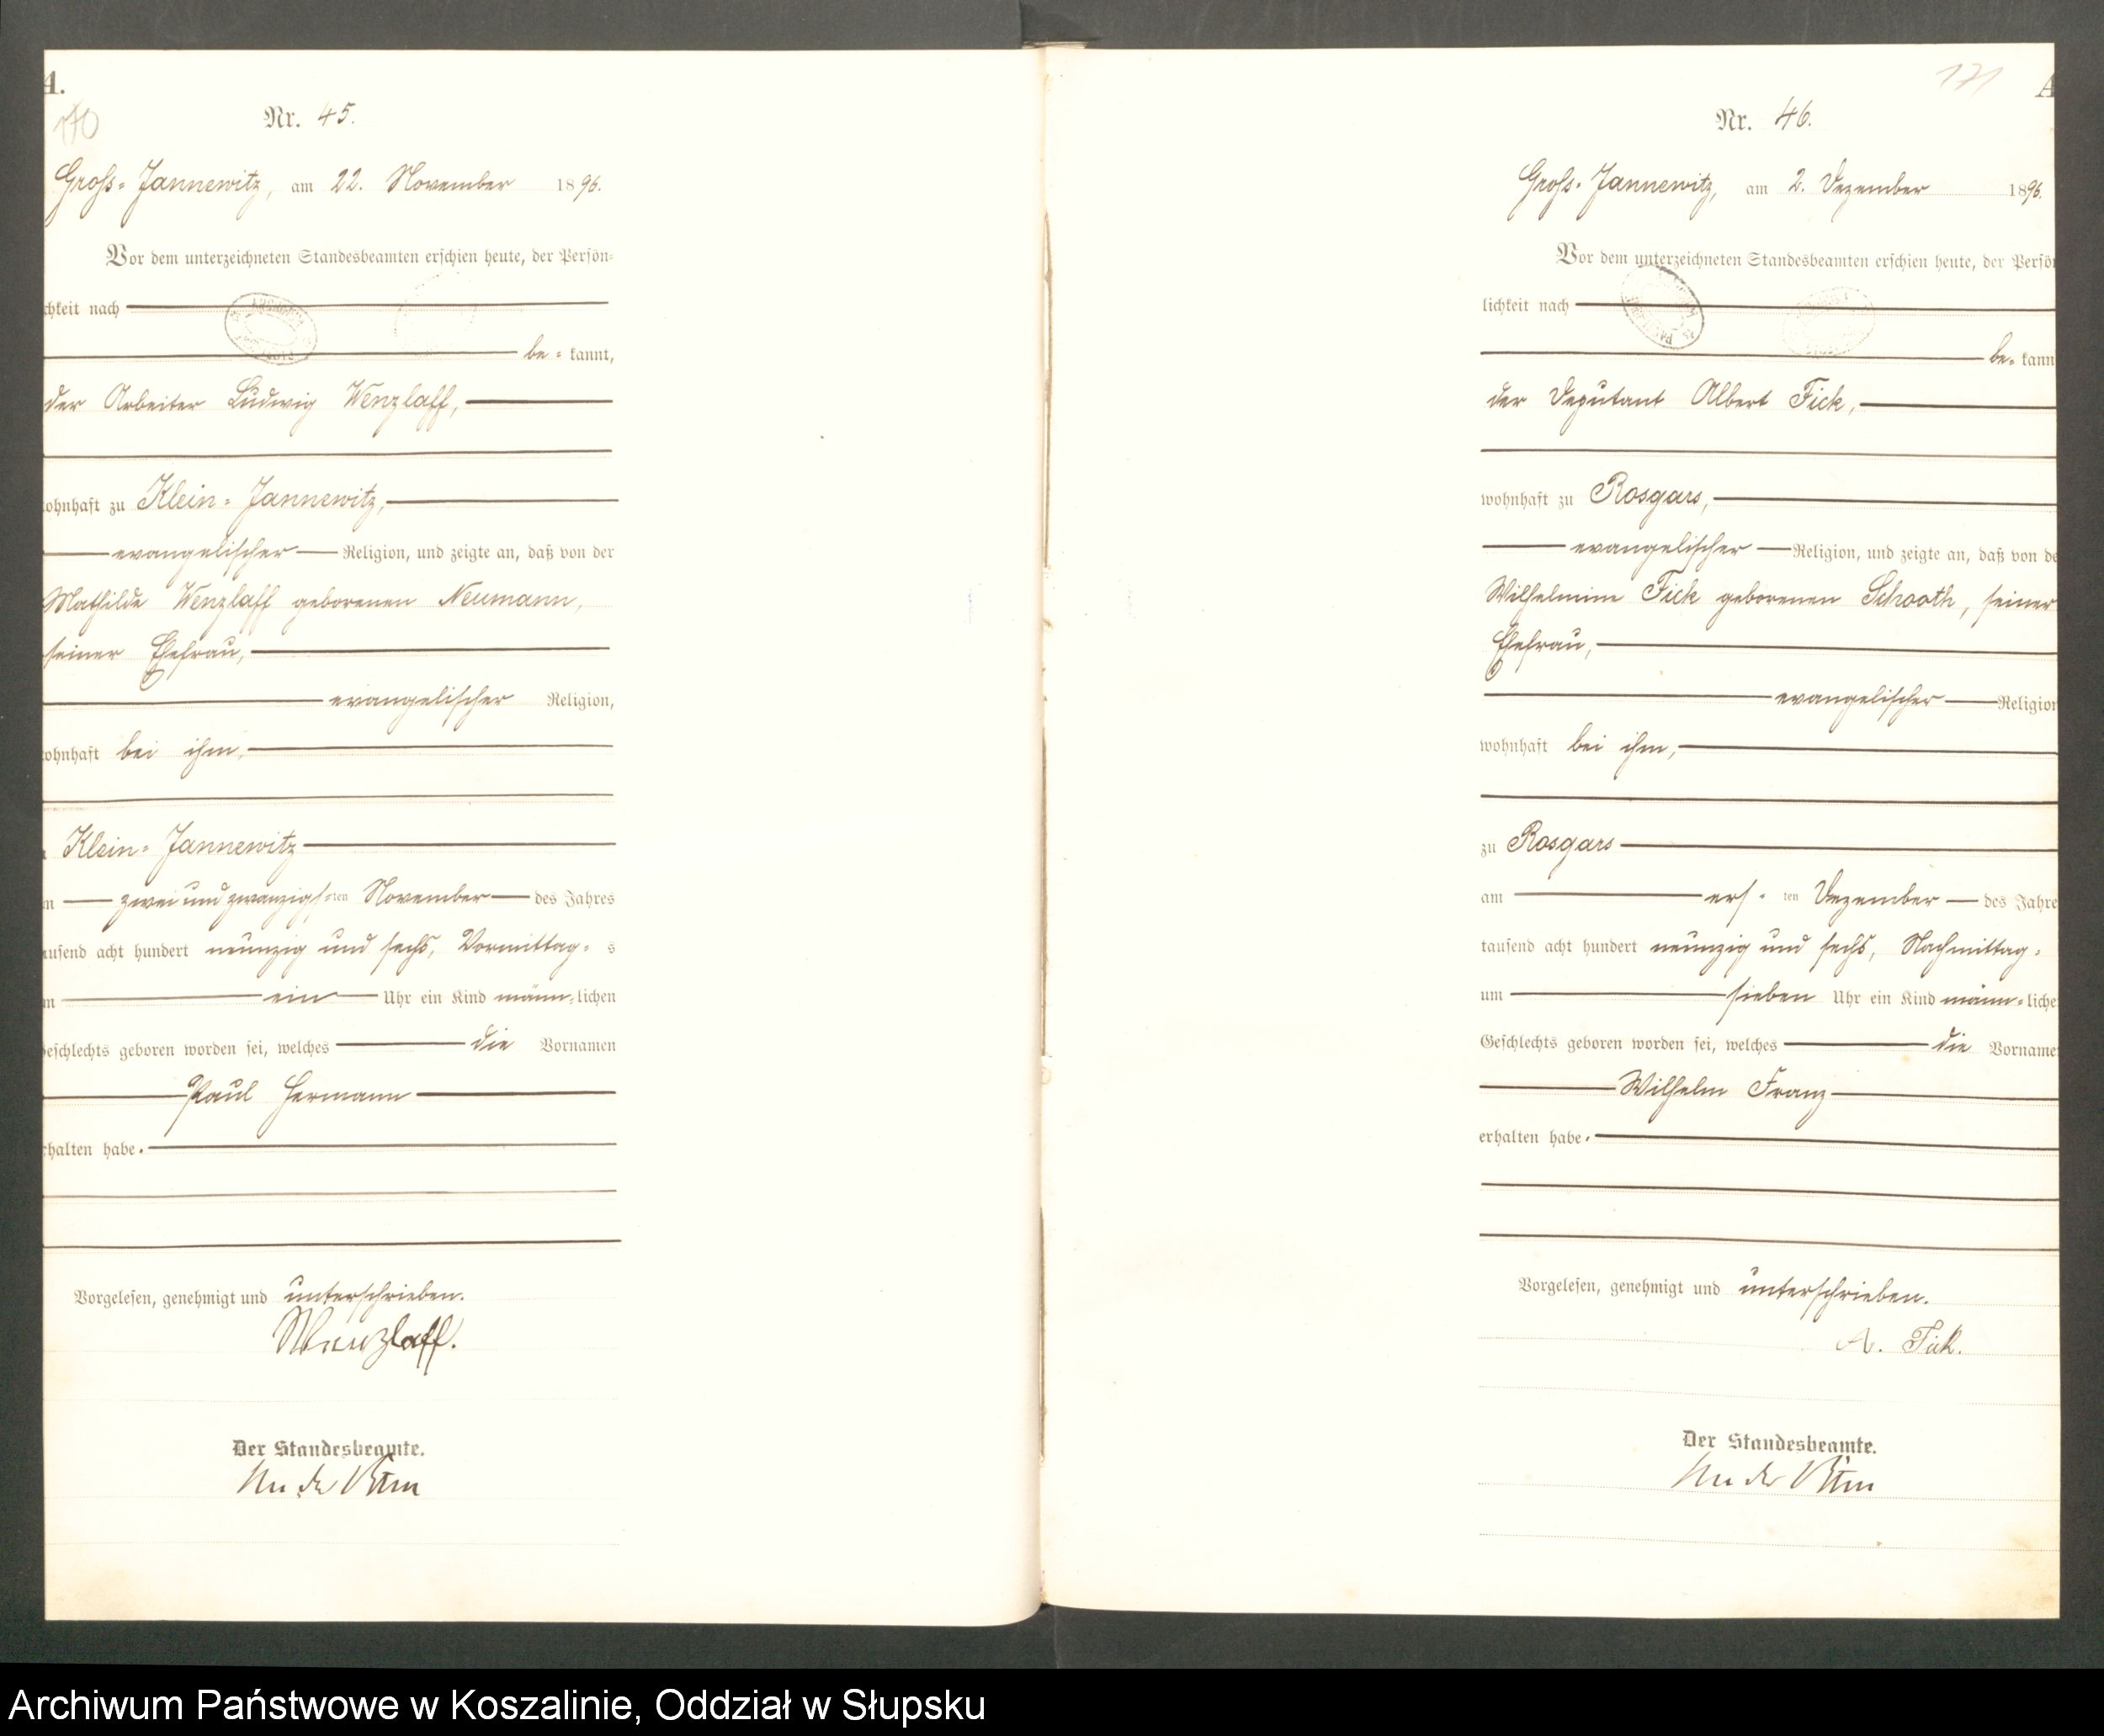 A.
170
Nr. 45.
Groß-Jannewitz, am 22. November 1896.
Vor dem unterzeichneten Standesbeamten erschien heute, der Persön-
chkeit nach
be-kannt,
der Arbeiter Ludwig Wenzlaff,
ohnhaft zu Klein-Jannewitz,
evangelischer Religion, und zeigte an, daß von der
Mathilde Wenzlaff geborenen Neumann,
seiner Ehefrau,
evangelischer Religion,
ohnhaft bei ihm,
Klein-Jannewitz
m zwei und zwanzigsten November des Jahres
ausend acht hundert neunzig und sechs, Vormittag-s
m ein Uhr ein Kind männ-lichen
eschlechts geboren worden sei, welches die Vornamen
Paul Hermann
rhalten habe.
Vorgelesen, genehmigt und unterschrieben.
Wenzlaff.
Der Standesbeamte.
171
A
Nr. 46.
Groß-Jannewitz, am 2. Dezember 1896.
Vor dem unterzeichneten Standesbeamten erschien heute, der Persö
lichkeit nach
be-kann
der Deputant Albert Fick,
wohnhaft zu Rosgars,
evangelischer Religion, und zeigte an, daß von de
Wilhelmine Fick geborenen Schooth, seiner
Ehefrau,
evangelischer Religion
wohnhaft bei ihm,
zu Rosgars
am ers-ten Dezember des Jahre
tausend acht hundert neunzig und sechs, Nachmittag-
um sieben Uhr ein Kind männ-liche
Geschlechts geboren worden sei, welches die Vorname
Wilhelm Franz
erhalten habe.
Vorgelesen, genehmigt und unterschrieben.
A. Fick.
Der Standesbeamte.
Archiwum Państwowe w Koszalinie, Oddział w Słupsku